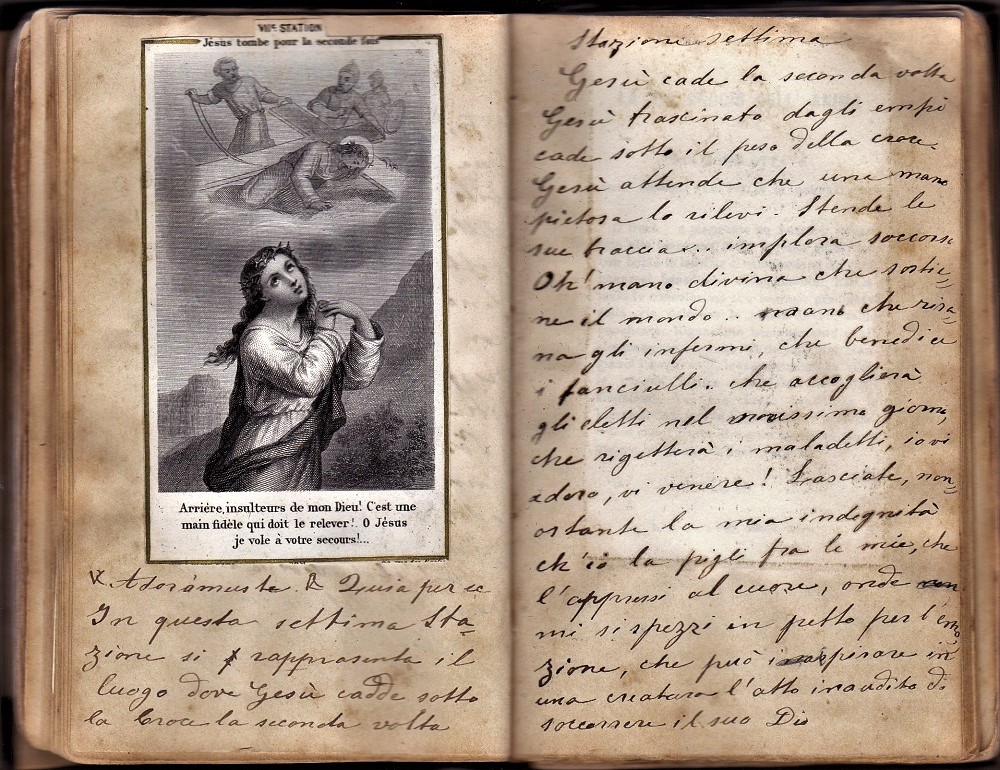 VIIe STATION
Jésus tombe pour la seconde fois
Arrière, insulteurs de mon Dieu! C'est une
main fidèle qui doit le relever! O Jésus
je vole à votre secours!...
℣. Adorámuste. ℟ Quia per ec
In questa settima Sta-
zione si rappresenta il
luogo dove Gesù cadde sotto
la Croce la seconda volta
Stazione settima
Gesù cade la seconda volta
Gesù trascinato dagli empi
cade sotto il peso della croce.
Gesù attende che una mano
pietosa lo rilevi. Stende le
sue braccia... implora soccorso
Oh! mano divina che sostie=
ne il mondo.. mano che risa=
na gli infermi, che benedice
i fanciulli. che accoglierà
gli eletti nel novissimo giorno,
che rigetterà i maladetti, io vi
adoro, vi venero! Lasciate, non=
ostante la mia indegnità
ch'io la pigli fra le mie, che
l'appressi al cuore, onde
mi si spezzi in petto per l'emo
zione, che può inspirare in
una creatura l'atto inaudito di
soccorrere il suo Dio